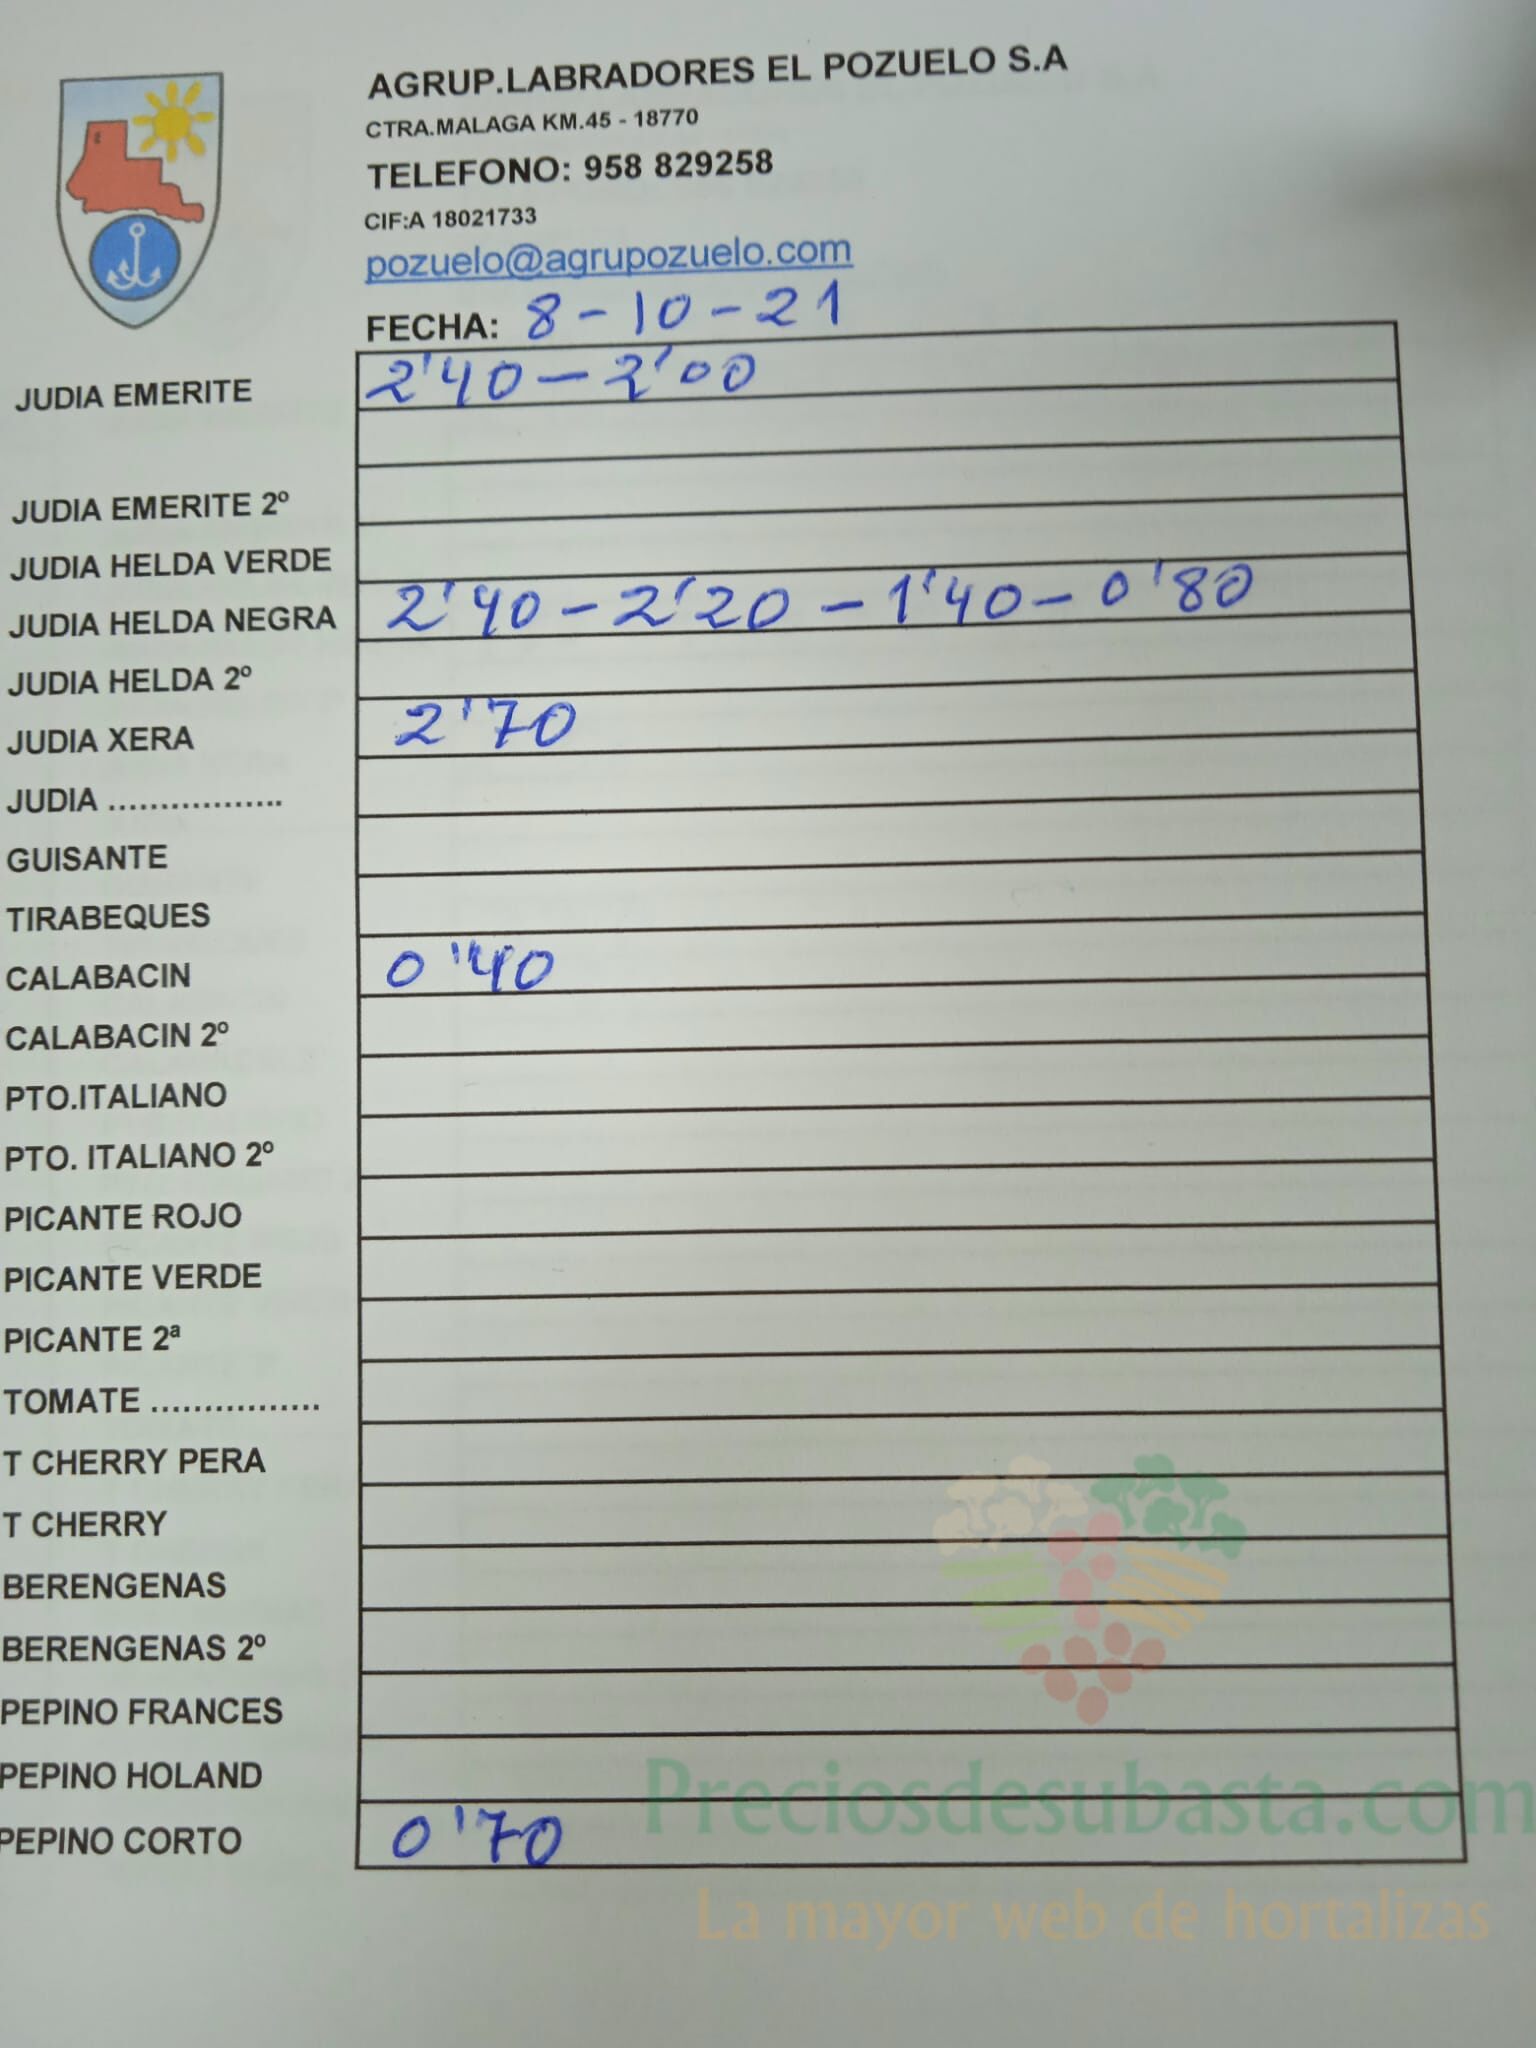 AGRUP.LABRADORES EL POZUELO S.A
CTRA.MALAGA KM.45 - 18770
TELEFONO: 958 829258
CIF:A 18021733
pozuelo@agrupozuelo.com
FECHA: 8-10-21
JUDIA EMERITE 2'40-2'00
JUDIA EMERITE 2º
JUDIA HELDA VERDE
JUDIA HELDA NEGRA 2'40-2'20-1'40-0'80
JUDIA HELDA 2º
JUDIA XERA 2'70
JUDIA .................
GUISANTE
TIRABEQUES
CALABACIN 0'40
CALABACIN 2º
PTO.ITALIANO
PTO. ITALIANO 2º
PICANTE ROJO
PICANTE VERDE
PICANTE 2ª
TOMATE ................
T CHERRY PERA
T CHERRY
BERENGENAS
BERENGENAS 2º
PEPINO FRANCES
PEPINO HOLAND
PEPINO CORTO 0'70
Preciosdesubasta.com
La mayor web de hortalizas